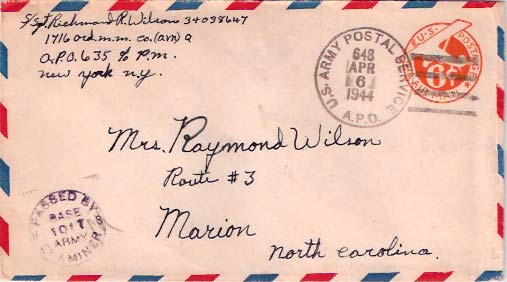 S/Sgt. Richmond R. Wilson 34098647
1716 Ord. m. m. co. (avn) Q
A.P.O. 635 % P.M.
new york n.y.
U.S. ARMY POSTAL SERVICE
A.P.O.
648
APR
6
1944
U.S. POSTAGE
6¢
AIR MAIL
Mrs. Raymond Wilson
Route #3
Marion
north carolina.
PASSED BY
BASE
1017
ARMY
EXAMINER